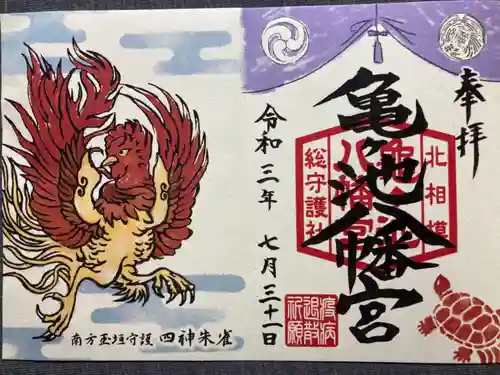 奉拝
亀ヶ池八幡宮
北相模
亀ヶ池八幡宮
総守護社
令和三年 七月三十一日
疫病退散祈願
南方玉垣守護 四神朱雀